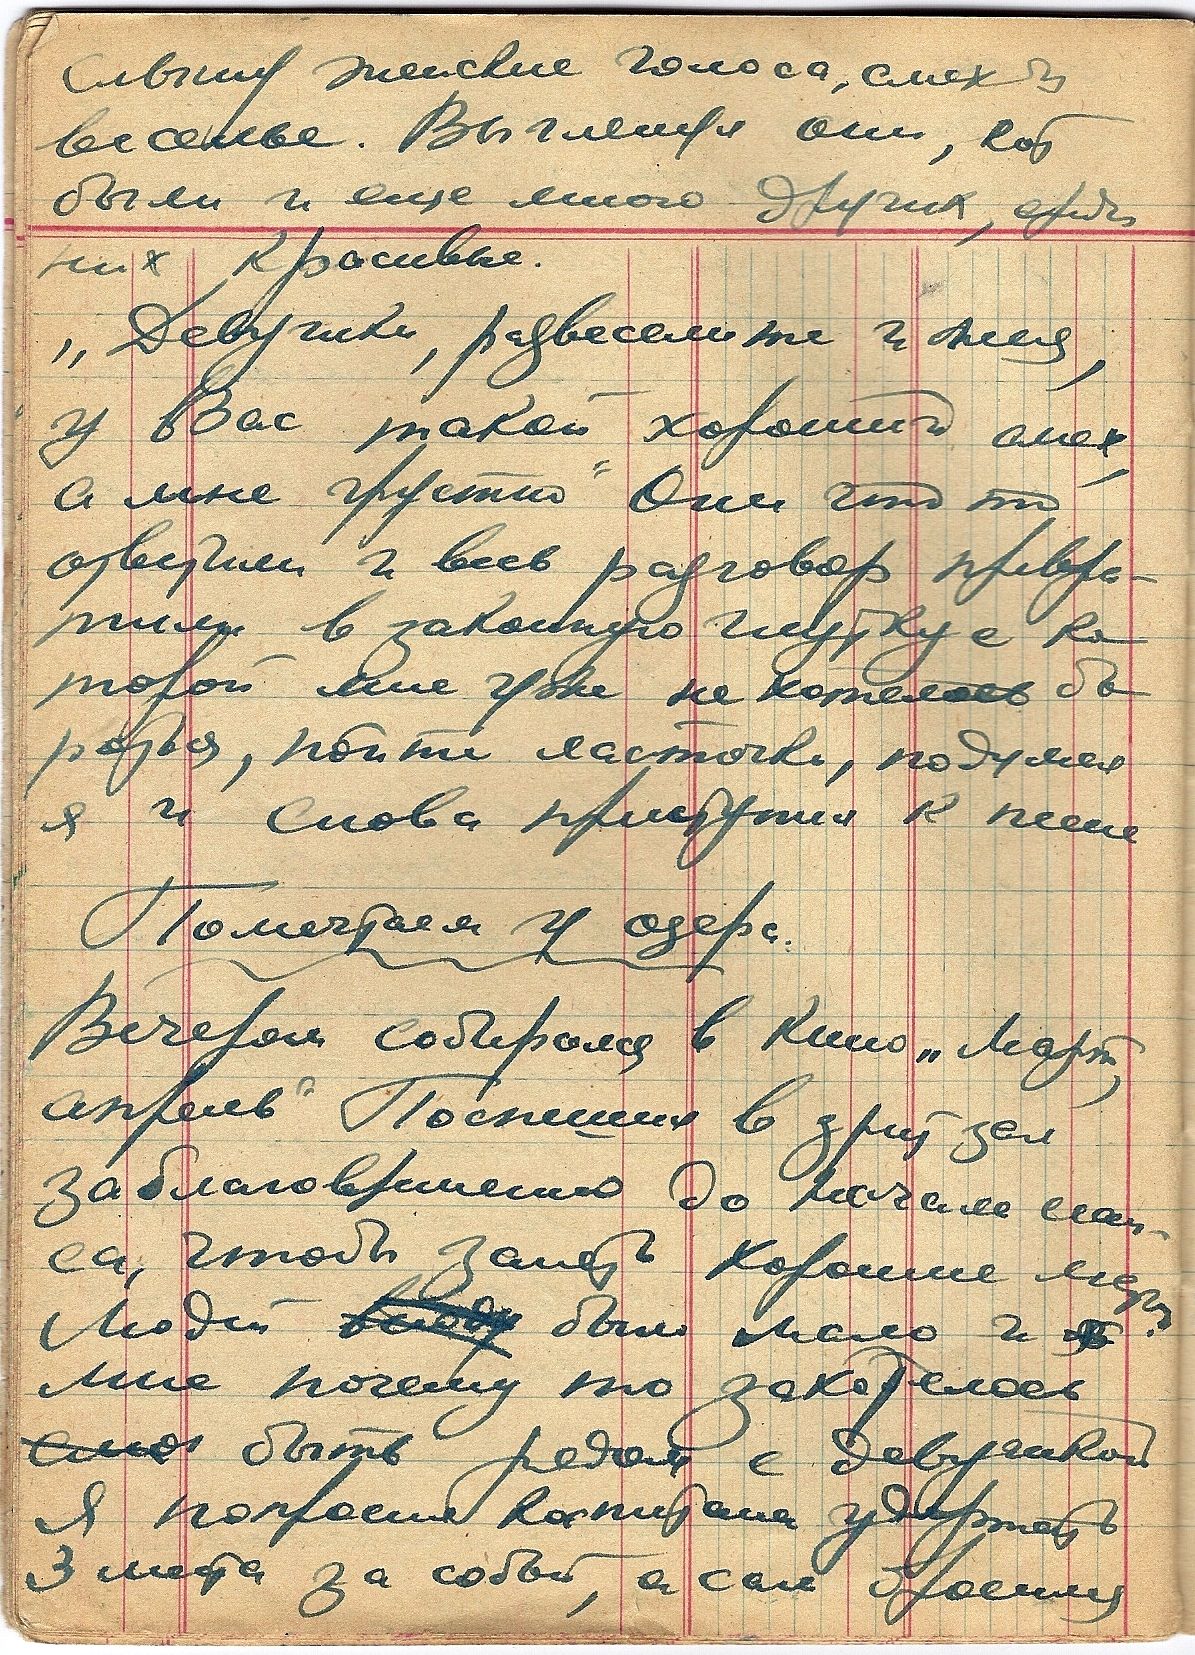 слышу женские голоса, смех и
веселье. Выглянул они, кот
были и еще много других, среди
них красивые.
„Девушки, развеселите и меня,
у Вас такой хороший смех,
а мне грустно" Они что то
ответили и весь разговор превра-
тили в законную шутку с ко
торой мне уже не хотелось бо
роться, ласточки, подумал
я и снова к
Помечтаем у озера.
Вечером собирался в кино „Март,
апрель" Поспешил в зрит зал
заблаговременно до начала сеан-
са, чтобы занять хорошие места.
Людей было мало и
мне почему то захотелось
быть рядом с девушкой
Я попросил капитана удержать
3 места за собой, а сам бросился